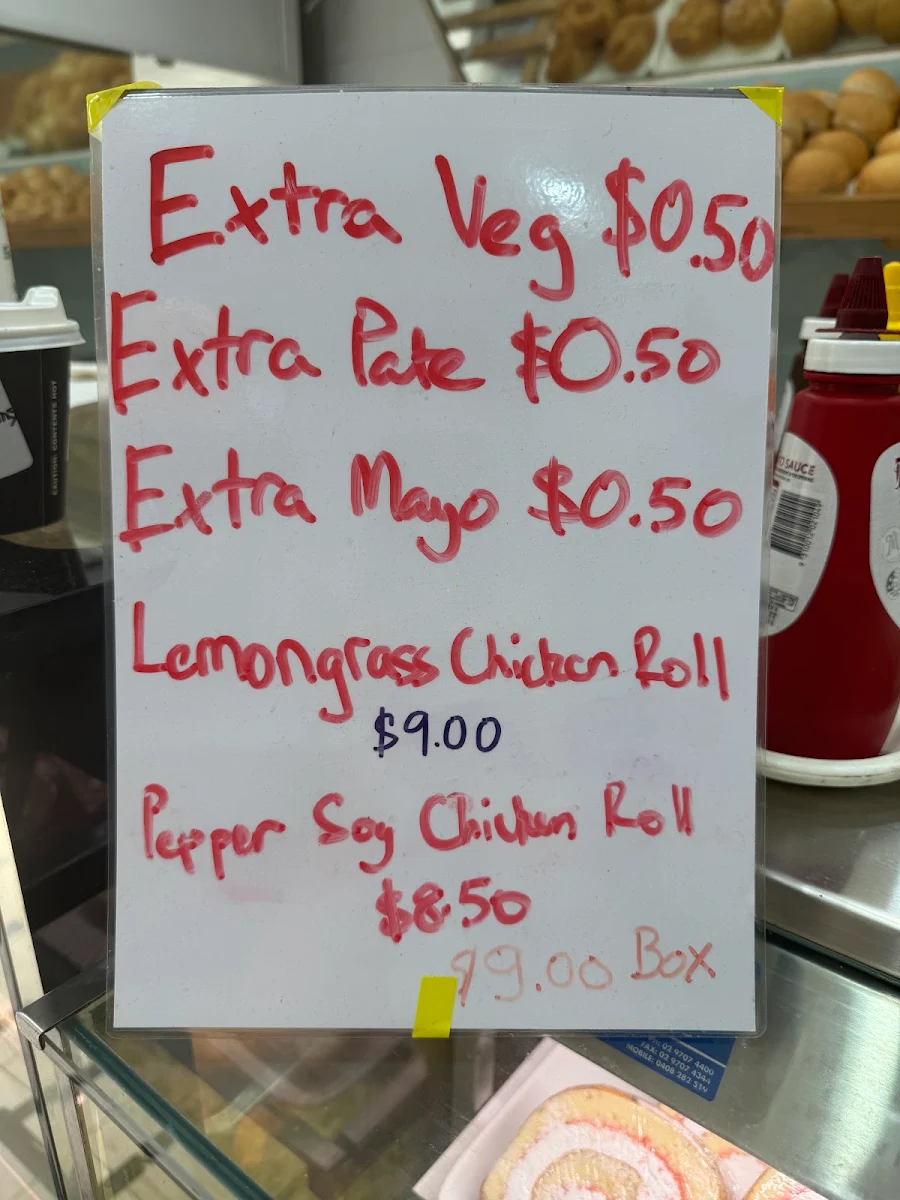 Extra Veg $0.50
Extra Pate $0.50
Extra Mayo $0.50
Lemongrass Chicken Roll
$9.00
Pepper Soy Chicken Roll
$8.50
$9.00 Box
CAUTION: CONTENTS HOT
SAUCE
FAX: 02 9707 4344
MOBILE: 0408 282 214